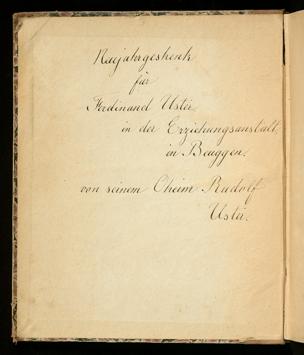 Neujahrgeschenk
für
Ferdinand Uster
in der Erziehungsanstalt,
in Beuggen.
von seinem Oheim Rudolf
Uster.